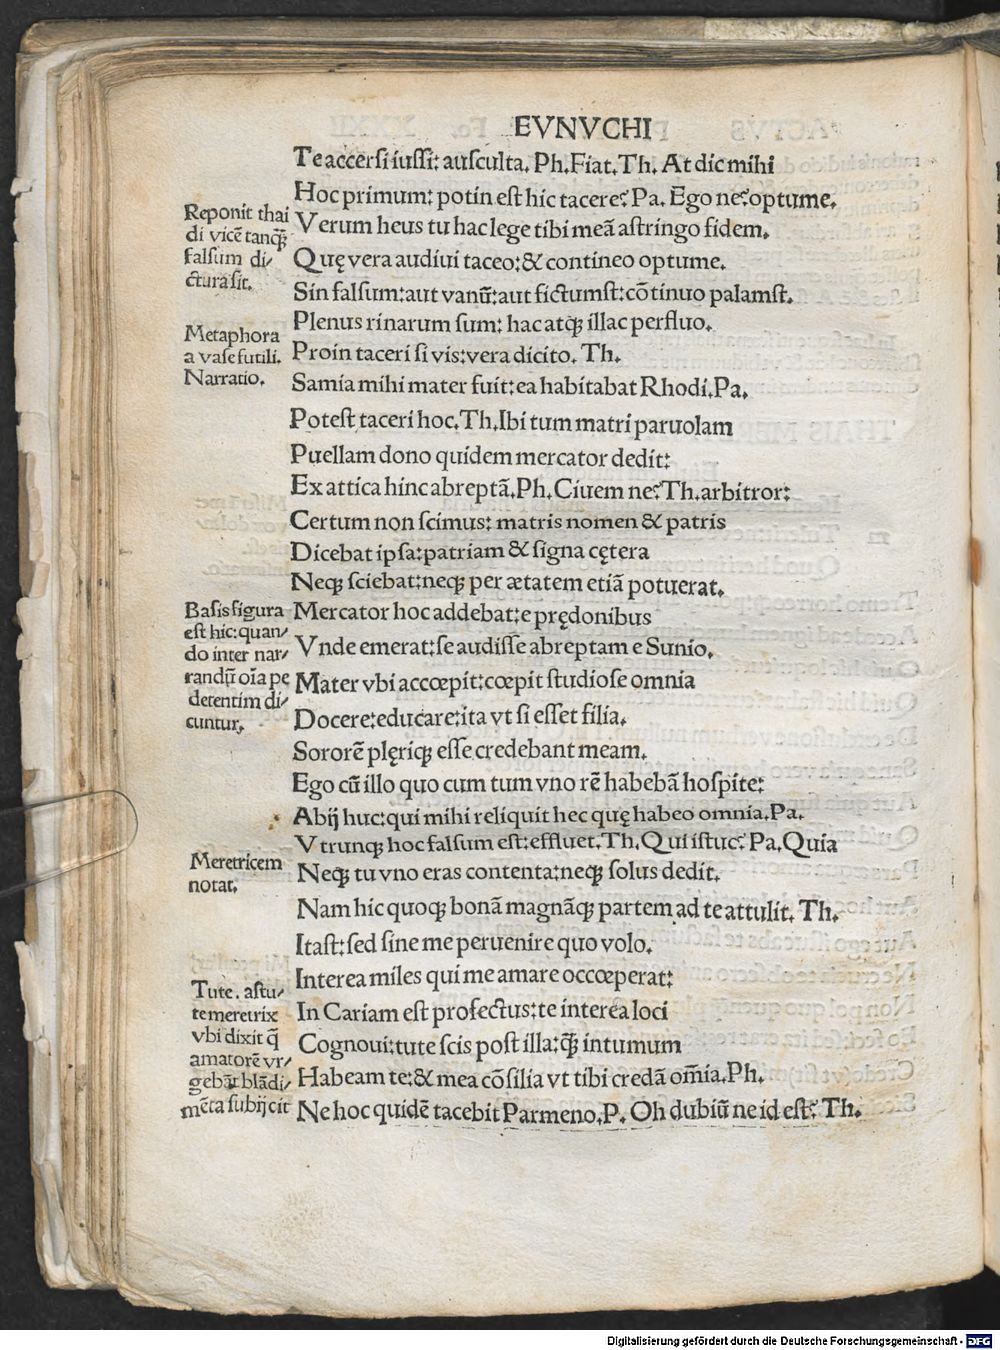 EVNVCHI
Te accersi iussi: ausculta. Ph. Fiat. Th. At dic mihi
Hoc primum: potin est hic tacere? Pa. Ego ne? optume.
Verum heus tu hac lege tibi meā astringo fidem.
Quę vera audiui taceo: & contineo optume.
Sin falsum: aut vanū: aut fictumst: cōtinuo palamst.
Plenus rinarum sum: hac atq illac perfluo.
Proin taceri si vis: vera dicito. Th.
Samia mihi mater fuit: ea habitabat Rhodi. Pa.
Potest taceri hoc. Th. Ibi tum matri paruolam
Puellam dono quidem mercator dedit:
Ex attica hinc abreptā. Ph. Ciuem ne? Th. arbitror:
Certum non scimus: matris nomen & patris
Dicebat ipsa: patriam & signa cętera
Neq sciebat: neq per ætatem etiā potuerat.
Mercator hoc addebat: e prędonibus
Vnde emerat: se audisse abreptam e Sunio.
Mater vbi accœpit: cœpit studiose omnia
Docere: educare: ita vt si esset filia.
Sororē plęriq esse credebant meam.
Ego cū illo quo cum tum vno rē habebā hospite:
Abij huc: qui mihi reliquit hec quę habeo omnia. Pa.
Vtrunq hoc falsum est: effluet. Th. Qui istuc? Pa. Quia
Neq tu vno eras contenta: neq solus dedit.
Nam hic quoq bonā magnāq partem ad te attulit. Th.
Itast: sed sine me peruenire quo volo.
Interea miles qui me amare occœperat:
In Cariam est profectus: te interea loci
Cognoui: tute scis post illa: q̄ intumum
Habeam te: & mea cōsilia vt tibi credā om̄ia. Ph.
Ne hoc quidē tacebit Parmeno. P. Oh dubiū ne id est? Th.
Reponit thai
di vicē tanq̄
falsum di/
ctura sit.
Metaphora
a vase futili.
Narratio.
Basis figura
est hic: quan/
do inter nar/
randū oīa pe
detentim di/
cuntur.
Meretricem
notat.
Tute. astu/
te meretrix
vbi dixit q̄
amatorē vr/
gebāt blādi/
mēta subijcit
Digitalisierung gefördert durch die Deutsche Forschungsgemeinschaft - DFG